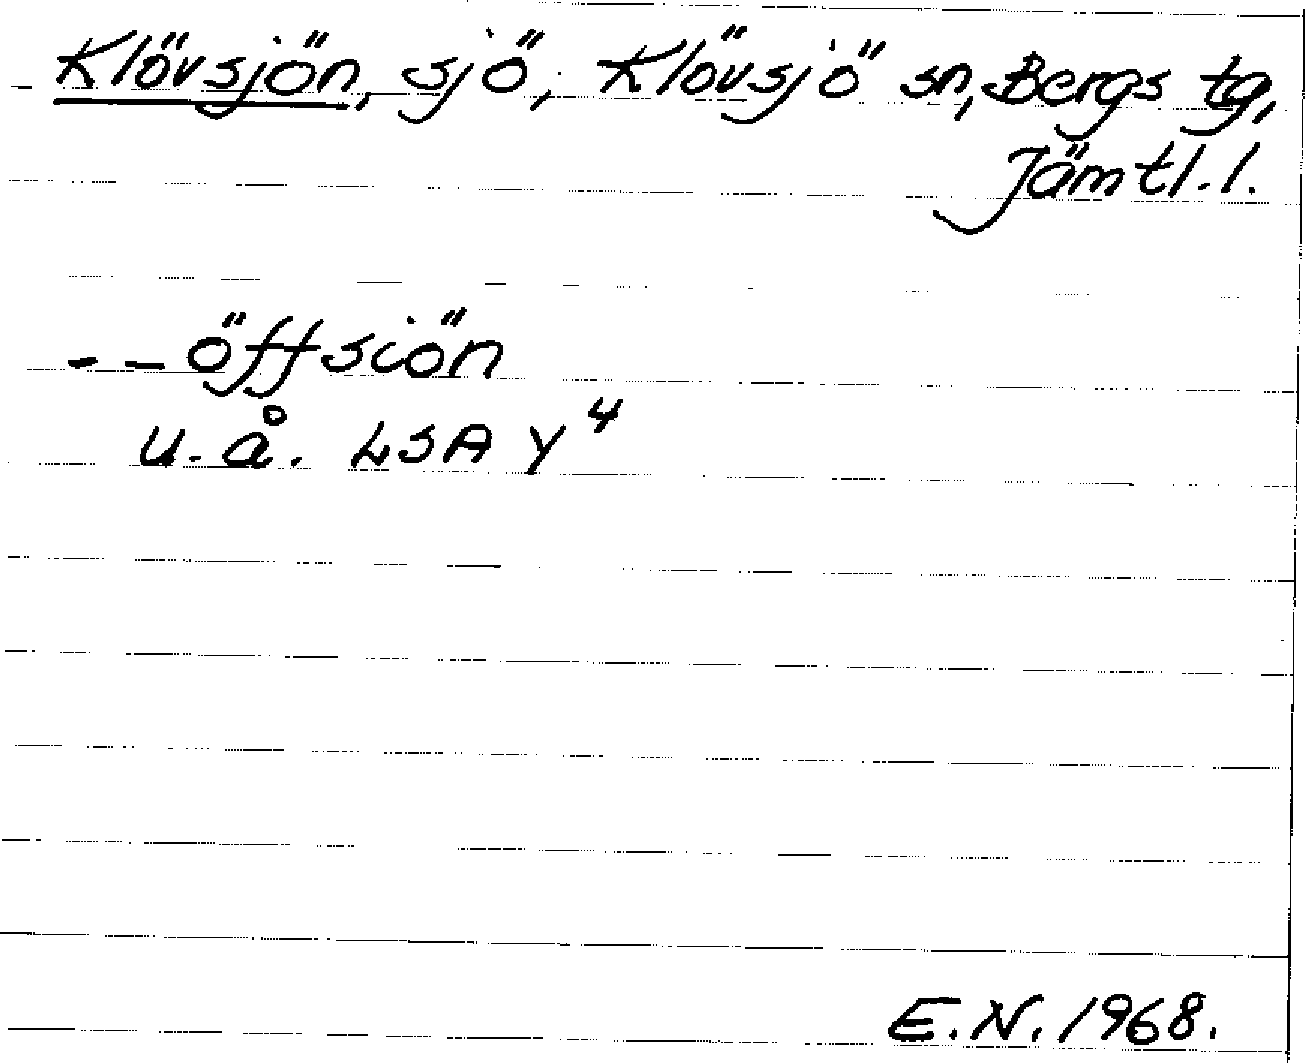 Klövsjön, sjö, Klövsjö sn, Bergs tg,
Jämtl. l.
-- öffsiön
u. å. LSA Y4
E.N. 1968.